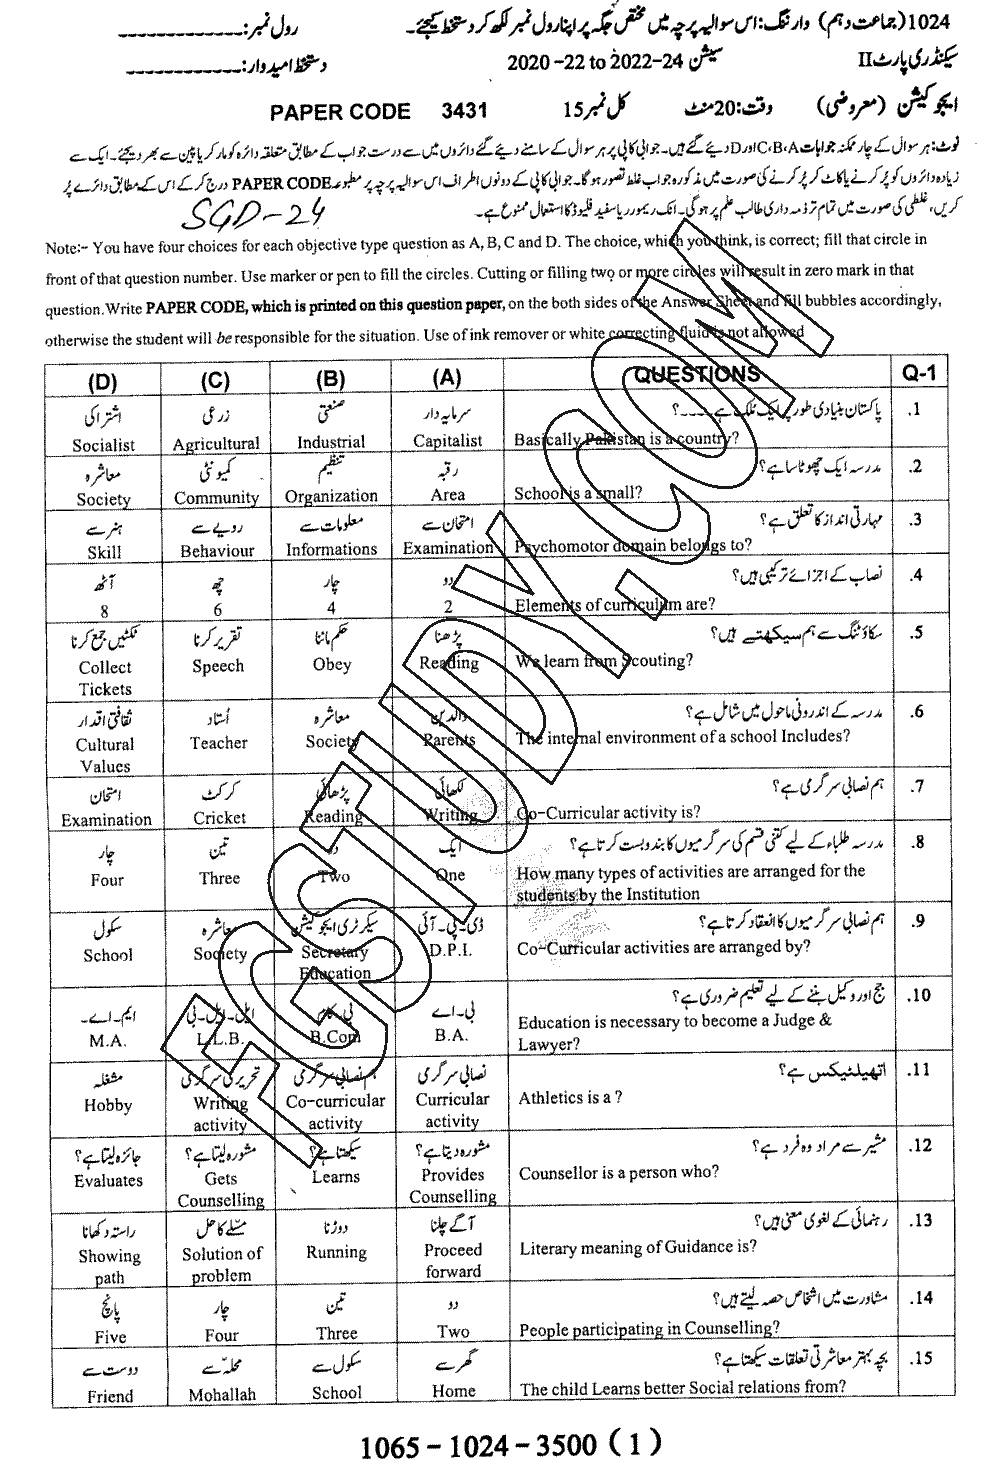 1024 (جماعت دہم) وارننگ: اس سوالیہ پرچہ میں مختص جگہ پر اپنا رول نمبر لکھ کر دستخط کیجئے۔ رول نمبر: ____________
سیکنڈری پارٹ II سیشن 2020-22 to 2022-24 دستخط امیدوار: ____________
ایجوکیشن (معروضی) وقت: 20 منٹ کل نمبر 15 PAPER CODE 3431
نوٹ: ہر سوال کے چار ممکنہ جوابات A،B،C اور D دیئے گئے ہیں۔ جوابی کاپی پر ہر سوال کے سامنے دیئے گئے دائروں میں سے درست جواب کے مطابق متعلقہ دائرہ کو مارکر یا پین سے بھر دیجئے۔ ایک سے
زیادہ دائروں کو پُر کرنے یا کاٹ کر پُر کرنے کی صورت میں مذکورہ جواب غلط تصور ہو گا۔ جوابی کاپی کے دونوں اطراف اس سوالیہ پرچہ پر مطبوعہ PAPER CODE درج کر کے اس کے مطابق دائرے پُر
کریں، غلطی کی صورت میں تمام تر ذمہ داری طالب علم پر ہوگی۔ انک ریموور یا سفید فلیوڈ کا استعمال ممنوع ہے۔
SGD-24
Note:- You have four choices for each objective type question as A, B, C and D. The choice, which you think, is correct; fill that circle in
front of that question number. Use marker or pen to fill the circles. Cutting or filling two or more circles will result in zero mark in that
question. Write PAPER CODE, which is printed on this question paper, on the both sides of the Answer Sheet and fill bubbles accordingly,
otherwise the student will be responsible for the situation. Use of ink remover or white correcting fluid is not allowed
(D) (C) (B) (A) QUESTIONS Q-1
اشتراکی زرعی صنعتی سرمایہ دار پاکستان بنیادی طور پر ایک ملک ہے ۔۔۔۔؟ .1
Socialist Agricultural Industrial Capitalist Basically Pakistan is a country?
معاشرہ کمیونٹی تنظیم رقبہ مدرسہ ایک چھوٹا سا ہے؟ .2
Society Community Organization Area School is a small?
ہنر سے رویے سے معلومات سے امتحان سے مہارتی انداز کا تعلق ہے؟ .3
Skill Behaviour Informations Examination Psychomotor domain belongs to?
آٹھ چھ چار دو نصاب کے اجزائے ترکیبی ہیں؟ .4
8 6 4 2 Elements of curriculum are?
ٹکٹیں جمع کرنا تقریر کرنا حکم ماننا پڑھنا سکاؤٹنگ سے ہم سیکھتے ہیں؟ .5
Collect Speech Obey Reading We learn from Scouting?
Tickets
ثقافتی اقدار اُستاد معاشرہ والدین مدرسہ کے اندرونی ماحول میں شامل ہے؟ .6
Cultural Teacher Society Parents The internal environment of a school Includes?
Values
امتحان کرکٹ پڑھائی لکھائی ہم نصابی سرگرمی ہے؟ .7
Examination Cricket Reading Writing Co-Curricular activity is?
چار تین دو ایک مدرسہ طلباء کے لیے کتنی قسم کی سرگرمیوں کا بندوبست کرتا ہے؟ .8
Four Three Two One How many types of activities are arranged for the
students by the Institution
سکول معاشرہ سیکرٹری ایجوکیشن ڈی۔پی۔آئی ہم نصابی سرگرمیوں کا انعقاد کرتا ہے؟ .9
School Society Secretary D.P.I. Co-Curricular activities are arranged by?
Education
ایم۔اے۔ ایل۔ایل۔بی بی۔کام بی۔اے جج اور وکیل بننے کے لیے تعلیم ضروری ہے؟ .10
M.A. L.L.B. B.Com B.A. Education is necessary to become a Judge &
Lawyer?
مشغلہ تحریری سرگرمی ہم نصابی سرگرمی نصابی سرگرمی اتھیلٹیکس ہے؟ .11
Hobby Writing Co-curricular Curricular Athletics is a ?
activity activity activity
جائزہ لیتا ہے؟ مشورہ لیتا ہے؟ سیکھتا ہے؟ مشورہ دیتا ہے؟ مشیر سے مراد وہ فرد ہے؟ .12
Evaluates Gets Learns Provides Counsellor is a person who?
Counselling Counselling
راستہ دکھانا مسئلے کا حل دوڑنا آگے چلنا رہنمائی کے لغوی معنی ہیں؟ .13
Showing Solution of Running Proceed Literary meaning of Guidance is?
path problem forward
پانچ چار تین دو مشاورت میں اشخاص حصہ لیتے ہیں؟ .14
Five Four Three Two People participating in Counselling?
دوست سے محلہ سے سکول سے گھر سے بچہ بہتر معاشرتی تعلقات سیکھتا ہے؟ .15
Friend Mohallah School Home The child Learns better Social relations from?
1065 - 1024 - 3500 ( 1 )
FGSTUDY.COM